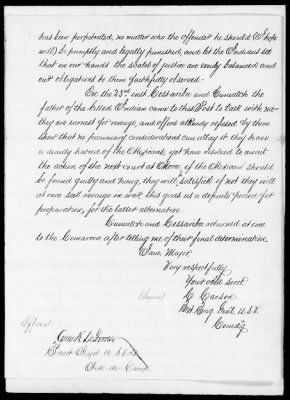 has been perpetrated, no matter who the offender he should (I hope
will) be promptly and legally punished, and let the Indians see
that in our hands the scales of justice are evenly balanced and
our obligations to them faithfully observed.
On the 23rd inst. and the
father of the killed Indian came to this Post to talk with me
they are earnest for revenge, and offers already refused by them
show that no pecuniary considerations can allay it, they have
a deadly hatred of the Mexicans, yet have resolved to await
the action of the next court at Mora, if the Mexican should
be found guilty and hung, they will be satisfied if not they will
at once seek revenge in war, this gives us a definite period for
preparation, for the latter alternative.
and returned at once
to the Cimarron after telling me of their final determination.
I am, Major
Very respectfully
Your obdt servt
(Signed) C. Carson
Bvt Brig Genl U.S.V.
Comdg
Official
Brevet Major U.S.
Aide-de-Camp